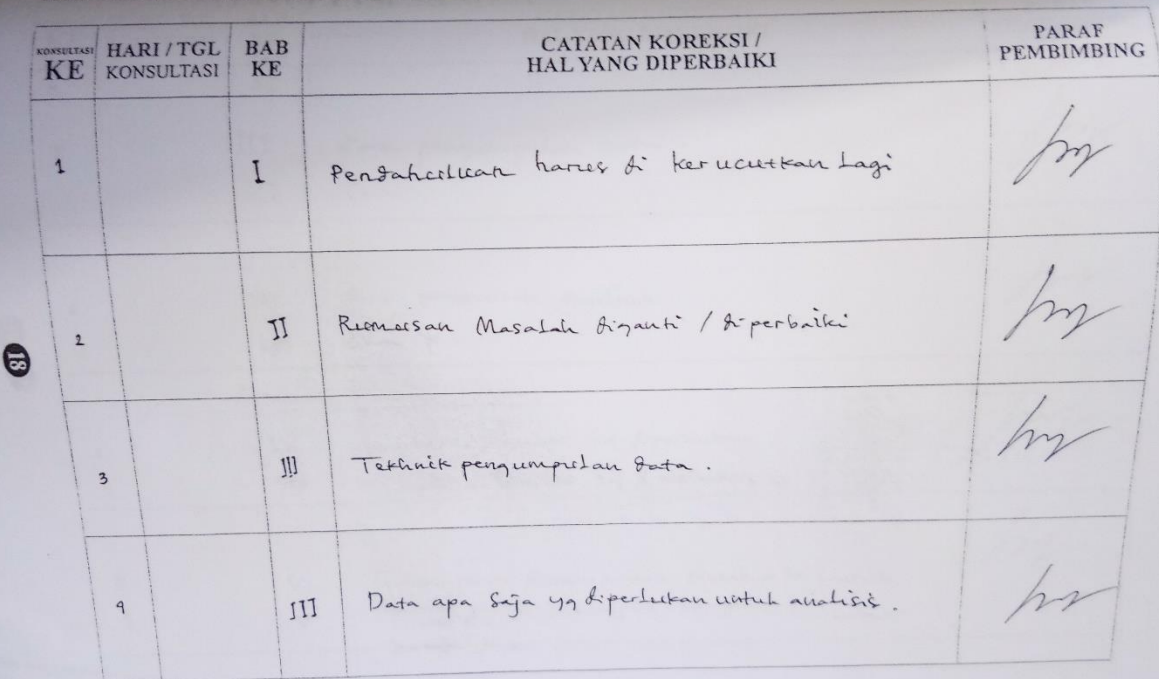 KONSULTASI KE
HARI / TGL KONSULTASI
BAB KE
CATATAN KOREKSI /
HAL YANG DIPERBAIKI
PARAF PEMBIMBING
1 I Pendahuluan harus di kerucutkan Lagi
2 II Rumusan Masalah diganti / diperbaiki
18
3 III Tekhnik pengumpulan data .
4 III Data apa saja yg diperlukan untuk analisis .